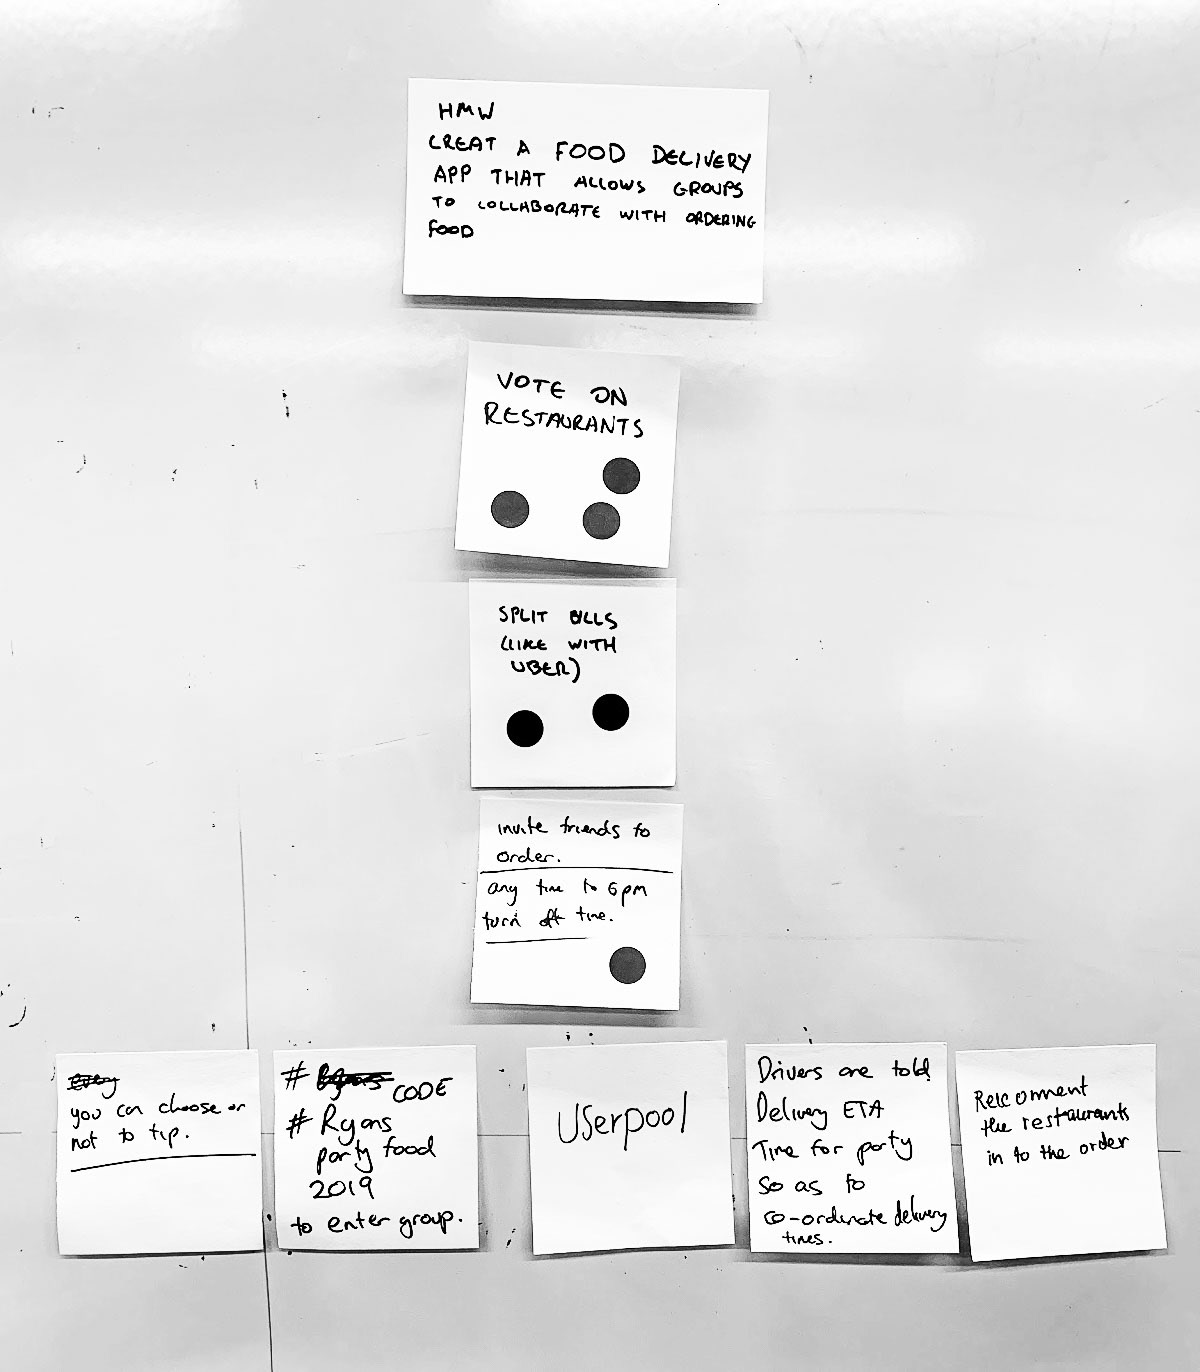 HMW
CREAT A FOOD DELIVERY
APP THAT ALLOWS GROUPS
TO COLLABORATE WITH ORDERING
FOOD
VOTE ON
RESTAURANTS
SPLIT BILLS
(LIKE WITH
UBER)
invite friends to
order.
any time to 6pm
turn off time.
every
you can choose or
not to tip.
# CODE
# Ryans
party food
2019
to enter group.
Userpool
Drivers are told
Delivery ETA
Time for party
so as to
co-ordinate delivery
times.
Reccomment
the restaurants
in to the order